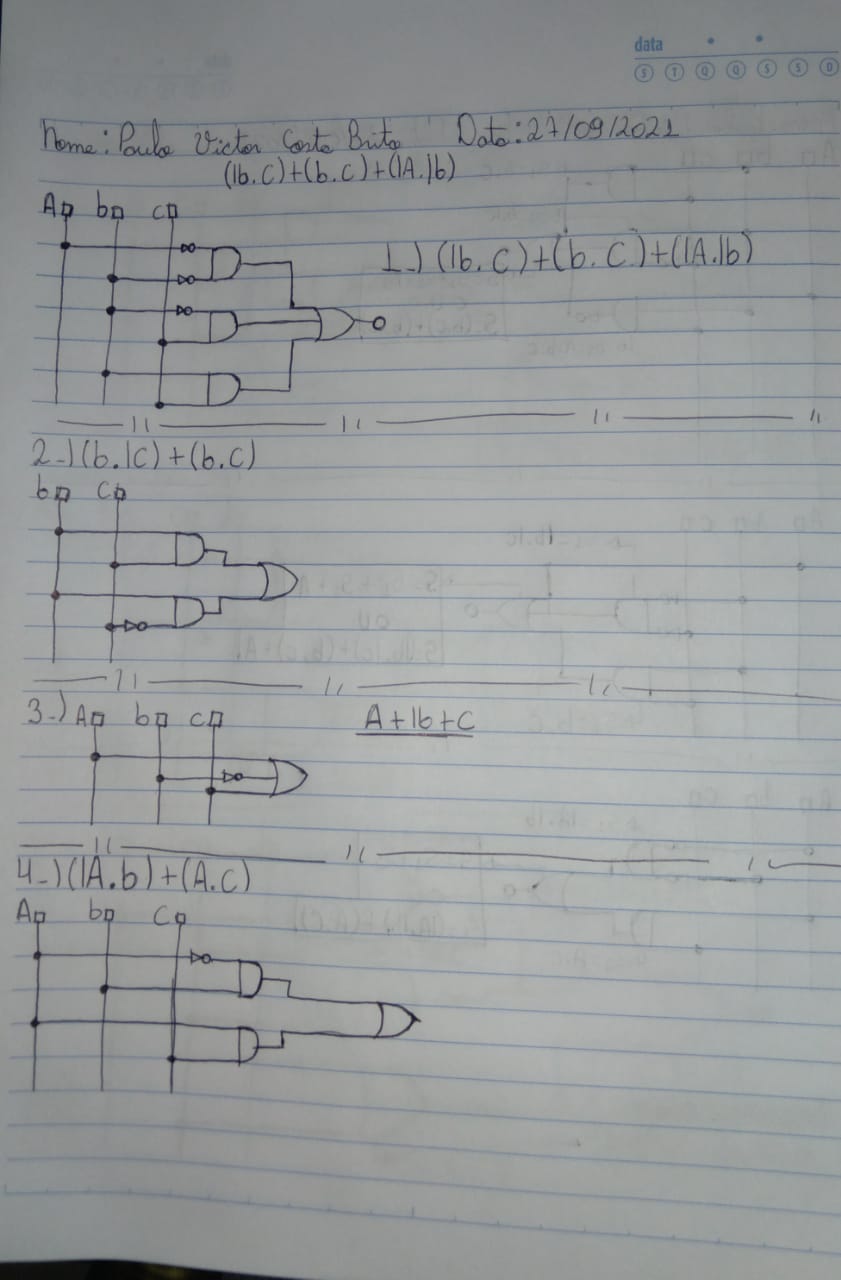 data
S T Q Q S S D
Nome: Paulo Victor Costa Brito Data: 27/09/2021
(|b.C)+(b.C)+(|A.|b)
A b c
1-) (|b.C)+(b.C)+(|A.|b)
2-) (b.|C)+(b.C)
b C
3-) A b c A+|b+C
4-) (|A.b)+(A.c)
A b C